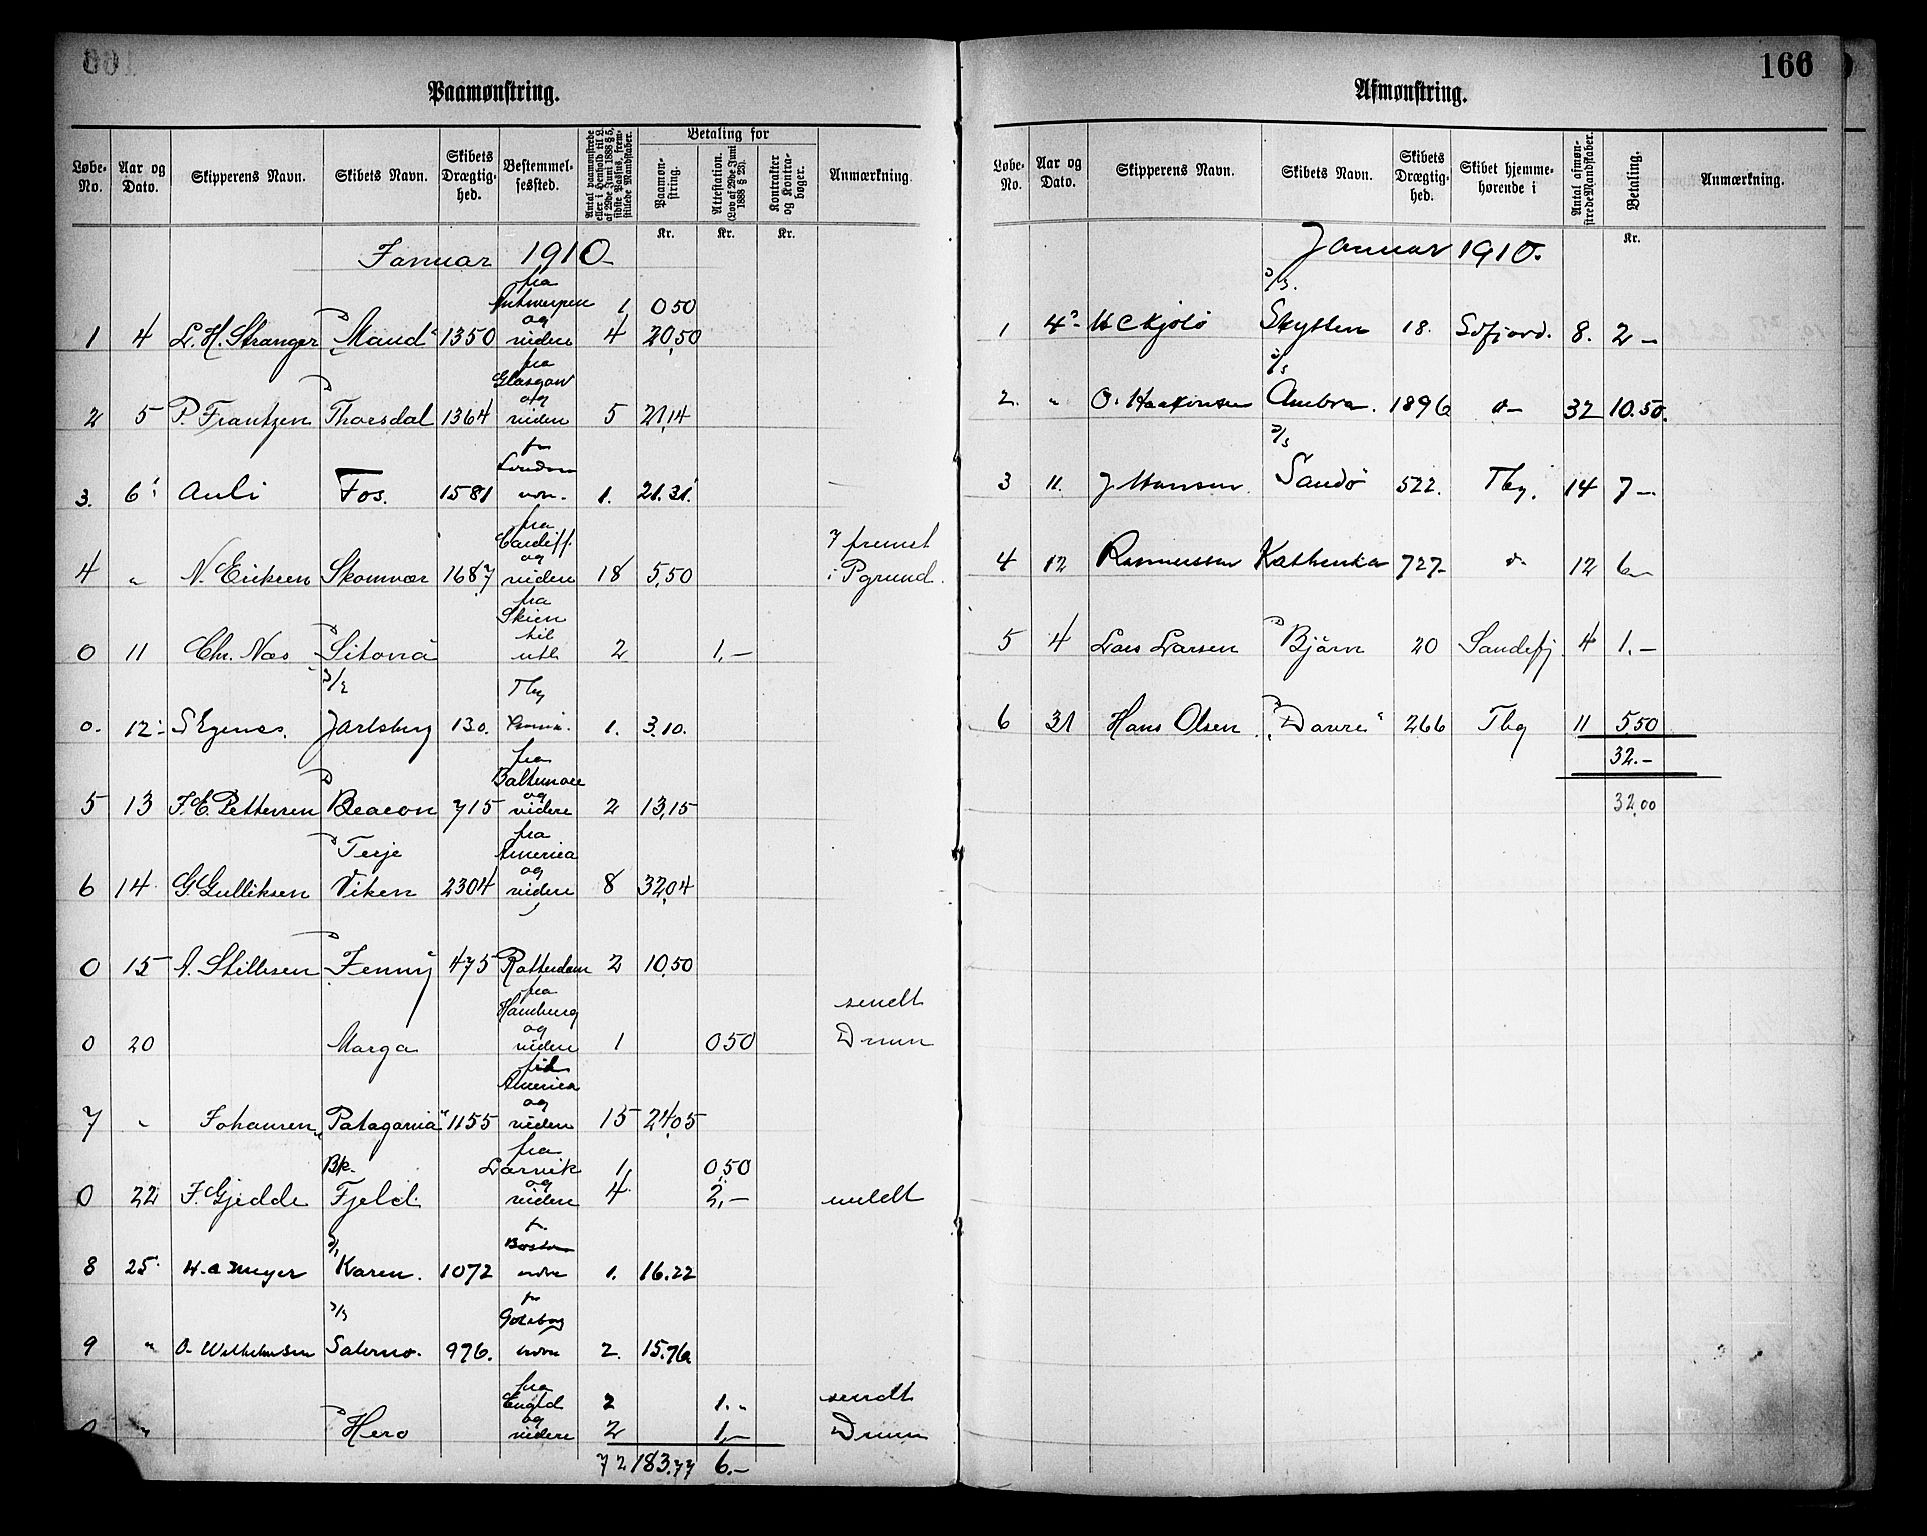 Paamønstring.
Løbe-No. Aar og Dato. Skipperens Navn. Skibets Navn. Skibets Drægtighed. Bestemmelsessted. Antal paamønstrede eller i Henhold til L. af 29de Juni 1888 § 5, sidste Passus, fremstillede Mandskaber. Betaling for Paamønstring. Attestation. (Lov af 29de Juni 1888 § 28). Kontrakter og Kontrabøger. Anmærkning.
Kr. Kr. Kr.
Januar 1910
fra
Antwerpen 1 0 50
og
1 4 L. H. Stranger "Maud" 1350 videre 4 20,50
fra
Glasgow
og
2 5 P. Frantzen Thorsdal 1364 videre 5 21,14
fr
London
3. 6 Auli Fos. 1581 vdr. 1. 21.31
fra
Cardiff 7 fremst
og
4 " N. Eriksen Skomvær 1687 videre 18 5,50 i Pgrund.
fra
Skien
til
0 11 Chr. Næs Sitona utl 2 1,-
S/S Tbg
0. 12 Jarlsberg 130. 1. 3.10.
fra
Baltimore
og
5 13 J. E. Pettersen Beacon 715 videre 2 13,15
fra
Terje America
og
6 14 G. Gulliksen Viken 2304 videre 8 32,04
0 15 A. Stillesen Fenny 475 Rotterdam 2 10,50
fra
Hamburg sendt
og
0 20 Marga videre 1 0 50 Drmn
America
og
7 " Johansen "Patagonia" 1155 videre 15 24,05
fra
Bk. Larvik 1 0,50
og
0 22 J. Gjedde Fjeld videre 4 2,-
fr
S/S Boston
8 25 H. A. Meyer Karen. 1072 vdre 1. 16.22
fr
S/S Gøteborg
9 " O. Wilhelmsen Salerno. 976. vdre 2. 15.76
fra
Engld 2 1." sendt
og
" Hero videre 2 1,- Drmn
72 183.77 6.-
166
Afmønstring.
Løbe-No. Aar og Dato. Skipperens Navn. Skibets Navn. Skibets Drægtighed. Skibet hjemmehørende i Antal afmønstrede Mandskaber. Betaling. Anmærkning.
Kr.
Januar 1910.
S/S
1 4 Skytten 18. Sdfjord. 8. 2-
S/S
2. " O. Haakonsen Ambra. 1896 d- 32 10.50.
S/S
3 11. J Hansen Sandø 522. Tbg. 14 7-
4 12 Rasmussen Kathinka 727- d- 12 6-
5 4 Lars Larsen Bjørn 20 Sandefj. 4 1.-
6 31 Hans Olsen "Dovre" 266 Tbg 11 5,50
32.-
32,00